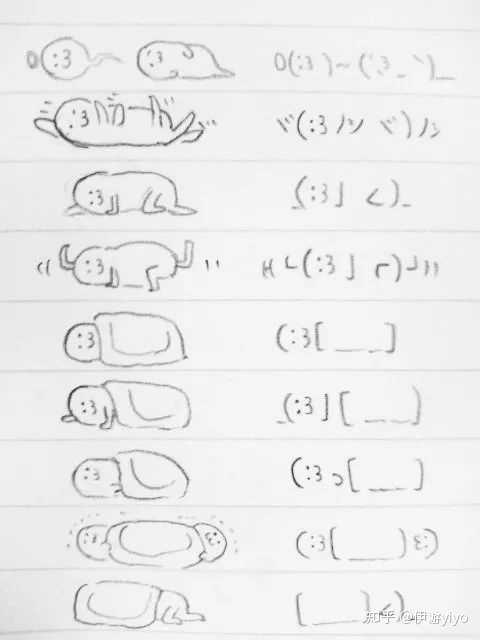 O(:3 )~ ('､3_ヽ)_
ヾ(:3ﾉｼ ヾ)ﾉｼ
_(:3 ｣ ∠)_
H└(:3 ｣ ┌)┘))
(:3[ ____ ]
_(:3 ｣[ ____ ]
(:3 っ[ ___ ]
(:3[ ____ ] ε:)
[ _____ ] <)_
知乎 @伊游yiyo